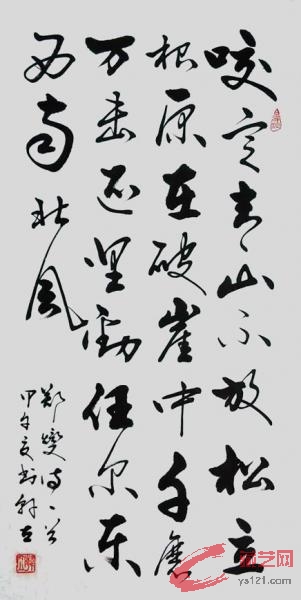 咬定青山不放松立
根原在破崖中千磨
万击还坚劲任尔东
西南北风
郑燮诗一首
甲午夏
艺网
ys121.com